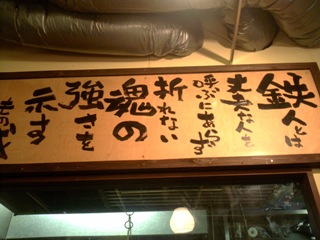 鉄人とは
丈夫な人を
呼ぶにあらず
折れない
魂の
強さを
示す